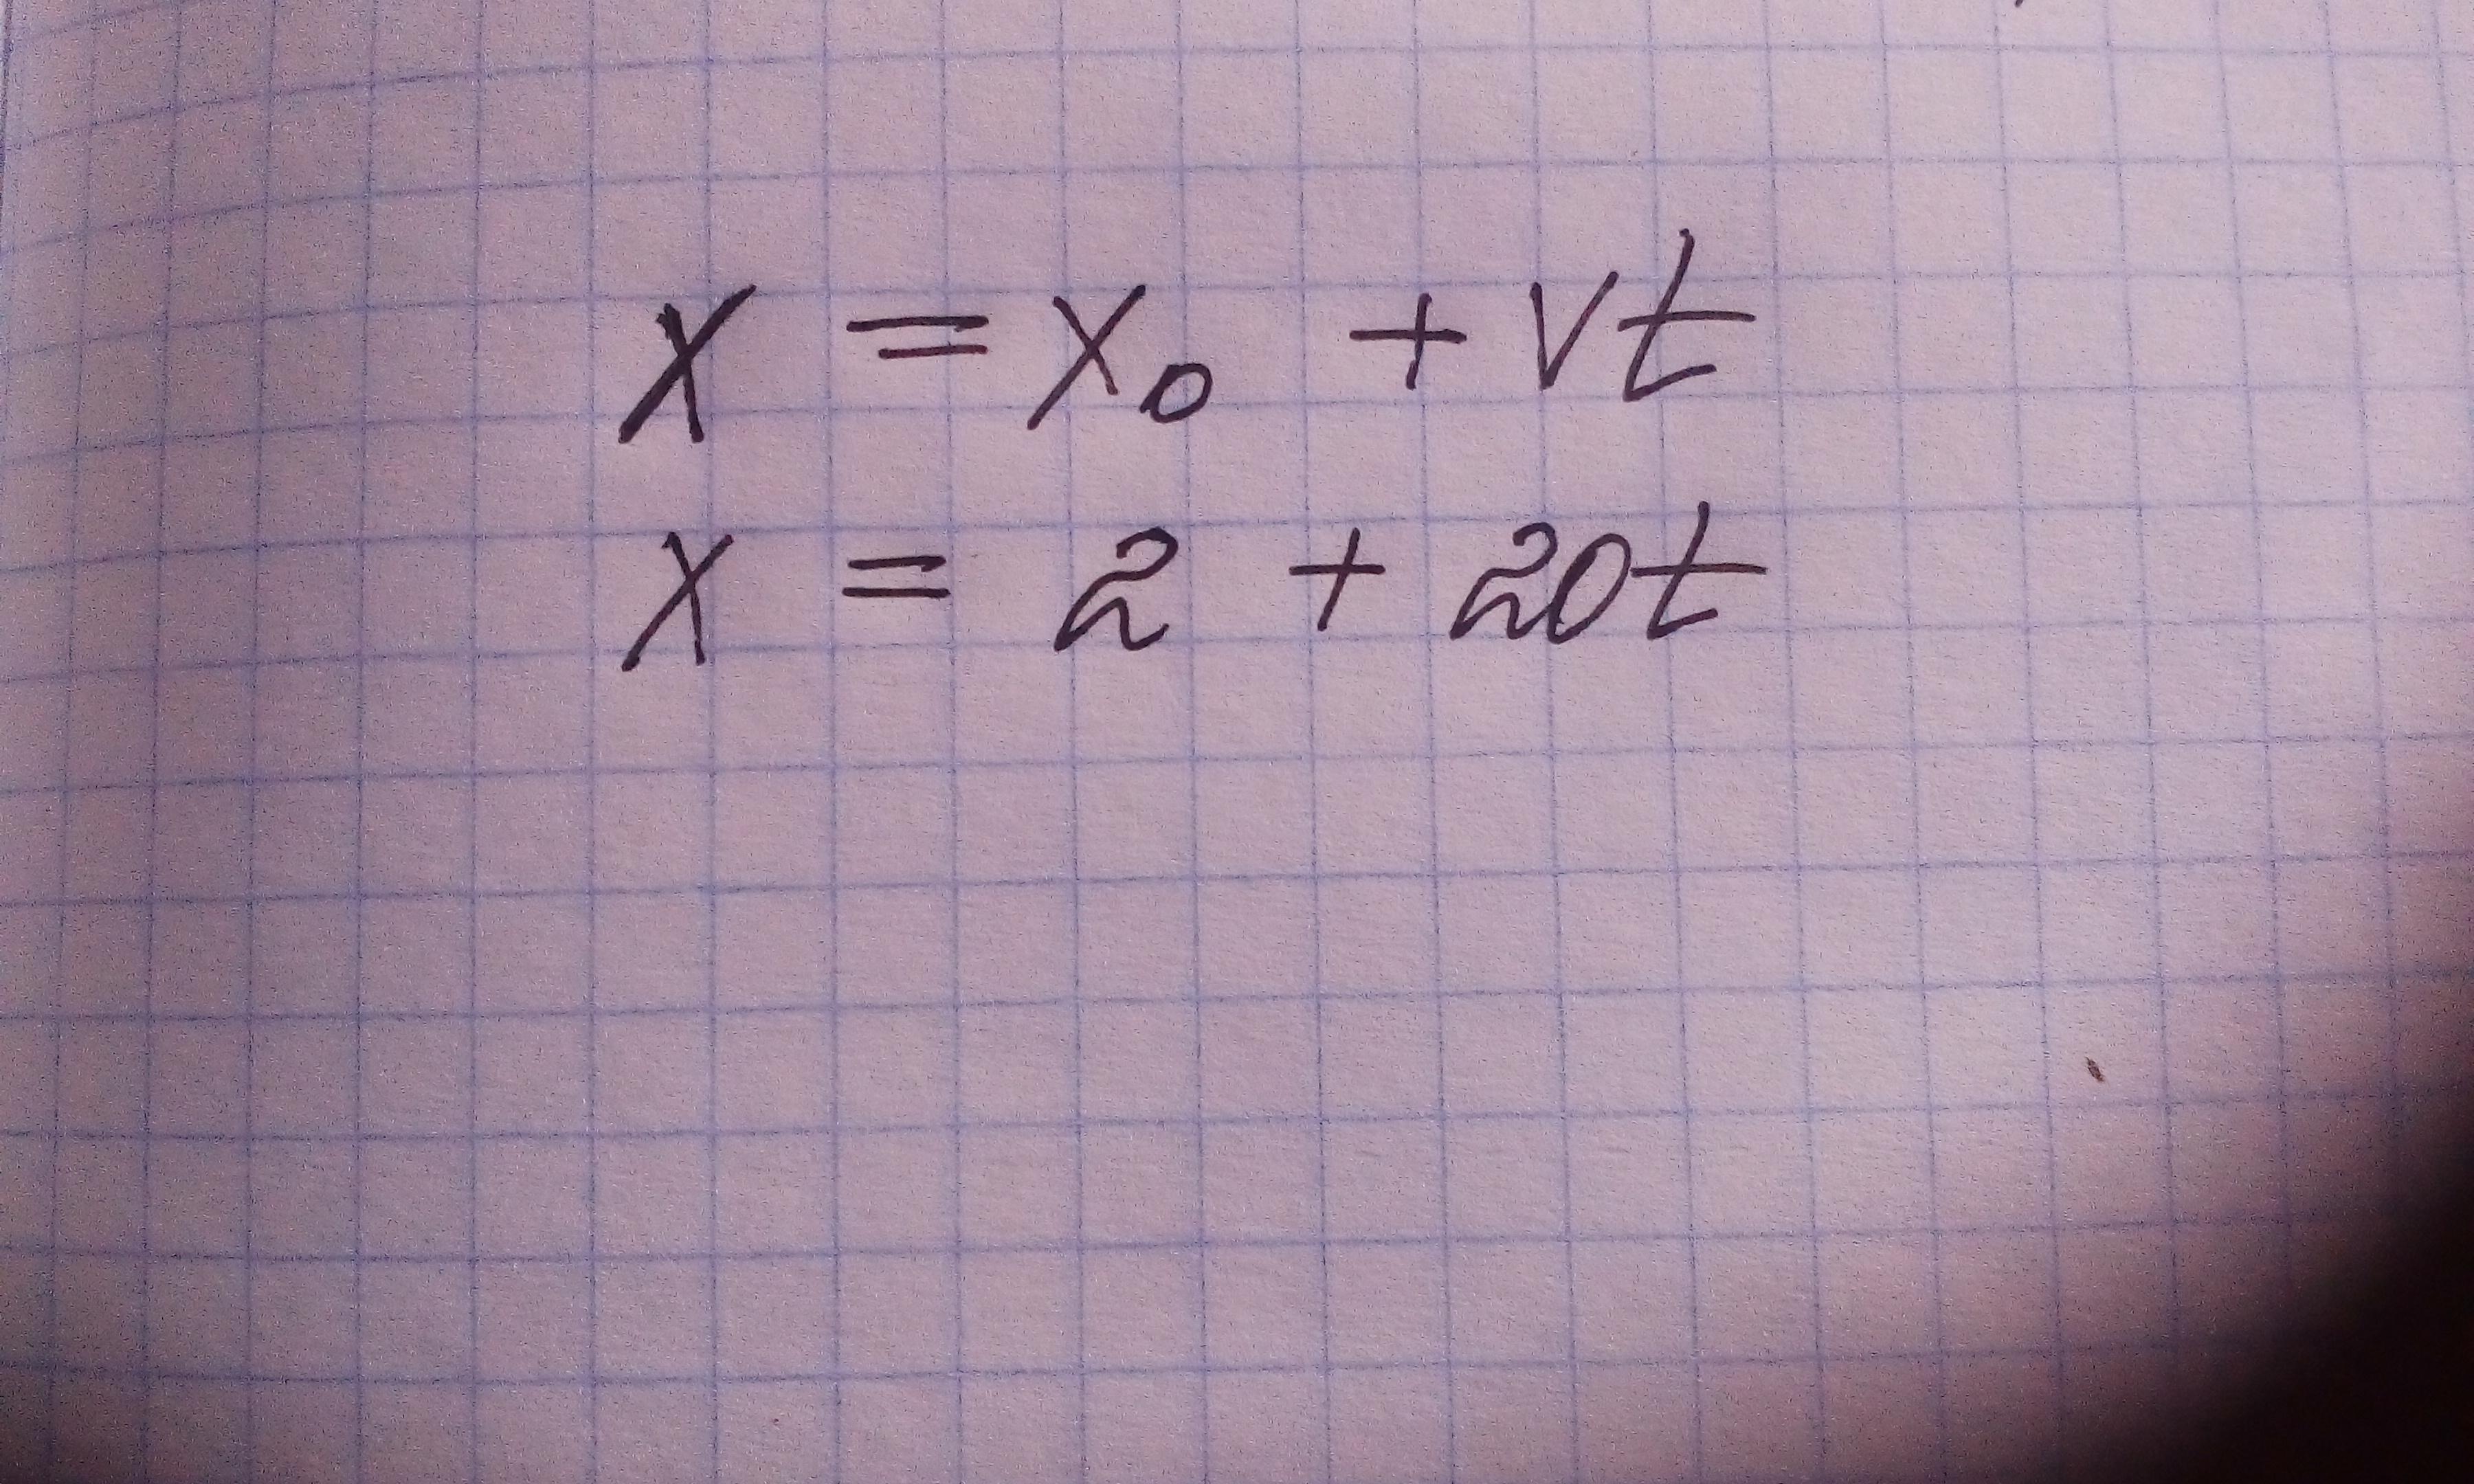 x = x₀ + vt
x = 2 + 20t